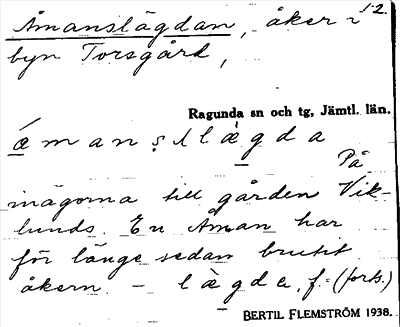 1-2.
Åmanslägdan, åker i
byn Torsgård,
Ragunda sn och tg, Jämtl. län.
ǽ̲ m a n ṣ l l æ̲̀ g d a
På
inägorna till gården Vik-
lunds. En Åman har
för länge sedan brukt
åkern. - l æ̲̀ g d a, f. = (forts.)
BERTIL FLEMSTRÖM 1938.